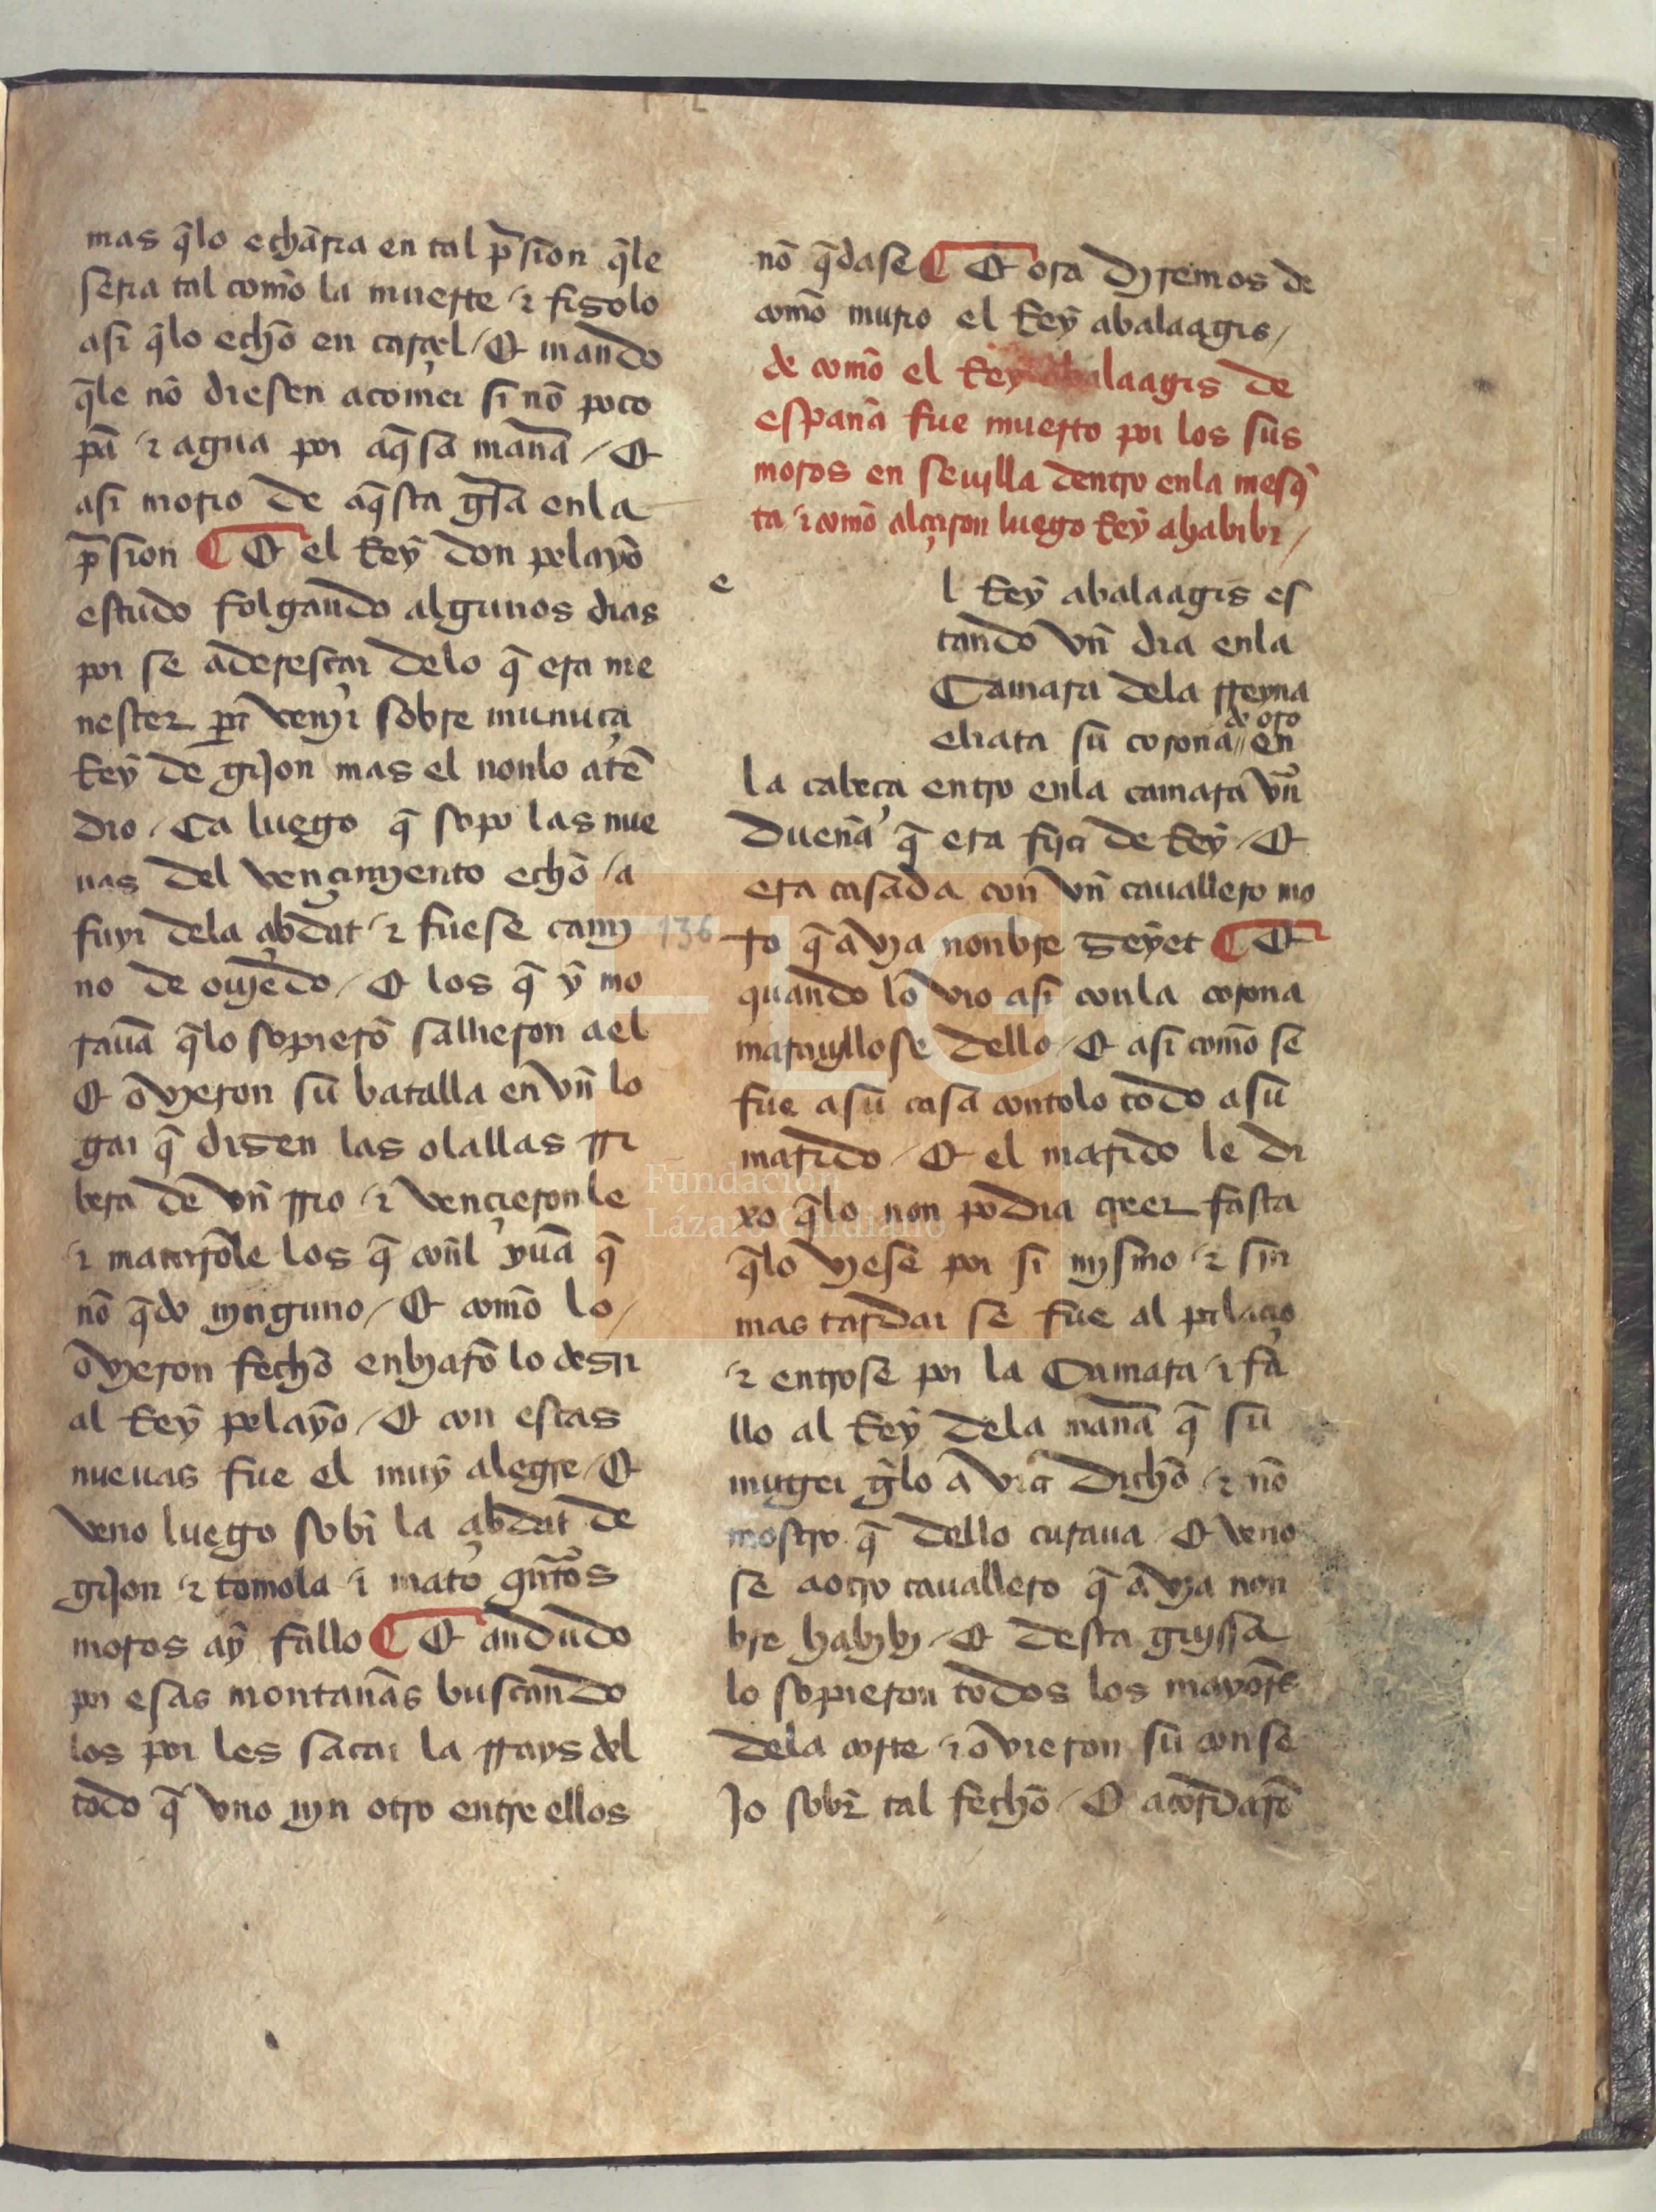 mas q̃lo echãria en tal p̃sion q̃le
seria tal comõ la muerte ⁊ fisolo
asi q̃lo echõ en carçel / Et mando
q̃le nõ diesen acomer si nõ poco
pã ⁊ agua por aq̃sa manã / Et
asi morio de aq̃sta gĩa enla
p̃sion ¶ Et el Rey don pelayõ
estudo folgando algunos dias
por se aderesçar delo q̃ era me
nester pã venyr sobre munuça
Rey de gijon mas el nonlo atẽ
dio / Ca luego q̃ sopo las nue
uas del vençimyento echõ / a
fuyr dela çibdat ⁊ fuese camy
no de ouiedo / Et los q̃ y mo
rauã q̃lo sopierõ sallieron a el
Et õvyeron sũ batalla en vñ lo
gar q̃ disen las olallas rri
bera de vñ rrio ⁊ vençieronle
⁊ matarõle los q̃ coñl yuã q̃
nõ q̃do nynguno / Et comõ lo /
õvyeron fechõ enbyarõ lo desir
al Rey pelayõ / Et con estas
nueuas fue el muy alegre / Et
veno luego sobr̃ la çibdat de
gijon ⁊ tomola ⁊ mato quãtos
moros ay fallo ¶ Et andudo
por esas montanãs buscando
los por les sacar la rrays del
todo q̃ vno nyn otro entre ellos
nõ q̃dase ¶ Et ora dyremos de
comõ murio el Rey abalaagis /
de comõ el Rey abalaagis de
espanã fue muerto por los sus
moros en seuilla dentro enla mesq̃
ta ⁊ comõ alçaron luego Rey ahabibi /
e
l Rey abalaagis es
tando vñ dia enla
Camara dela rreyna
eliata sũ corona // de oro en
la cabeça entro enla camara vñ
duenã q̃ era fija de Rey / Et
era casada con vñ cauallero mo
ro q̃ avya nonbre zeyet ¶ Et
quando lo vio asi conla corona
marauyllose dello / Et asi comõ se
fue asũ casa contolo todo asũ
marido / Et el marido le di
xo q̃lo non podia creer fasta
q̃lo vyese por si mysmo ⁊ sin
mas tardar se fue al palaçio
⁊ entrose por la Camara ⁊ fa
llo al Rey dela manã q̃ sũ
muger q̃lo a viã dichõ ⁊ nõ
mostro q̃ dello curaua / Et veno
se aotro cauallero q̃ avya non
bre habyby / Et desta guyssa
lo sopieron todos los mayor̃s
dela corte ⁊ õvieron sũ conse
jo sobr̃ tal fechõ / Et acordarõ
136
Fundación
Lázaro Galdiano